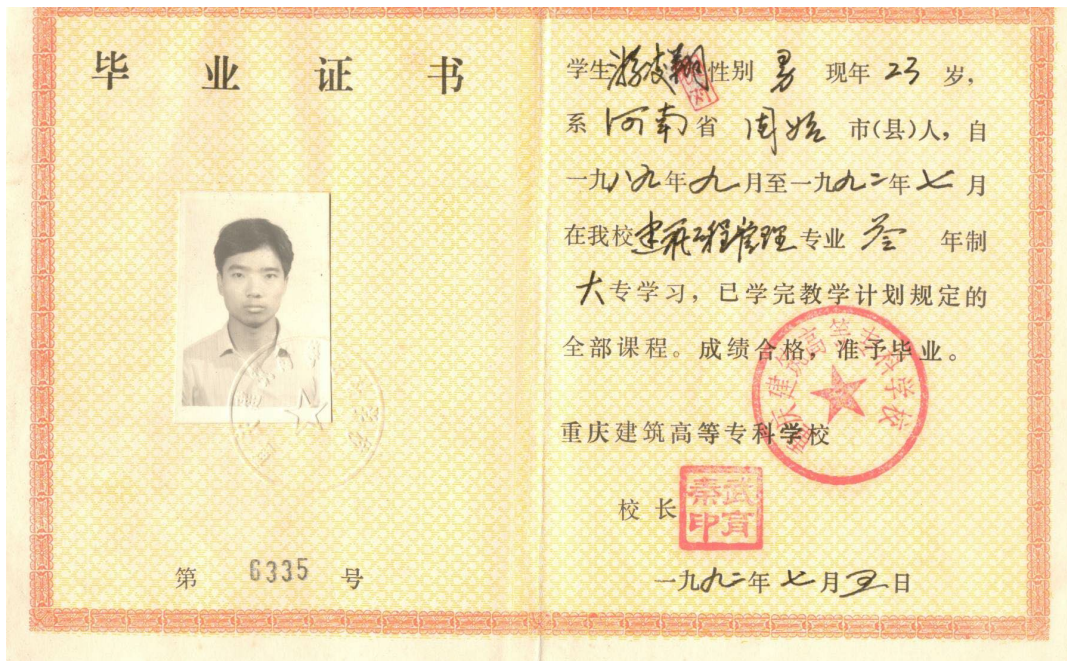 毕业证书
第 6335 号
学生游凌翔性别 男 现年 23 岁，
系 河南省 固始 市(县)人，自
一九八九年九月至一九九二年七月
在我校建筑工程管理专业 叁 年制
大专学习，已学完教学计划规定的
全部课程。成绩合格，准予毕业。
重庆建筑高等专科学校
重庆建筑高等专科学校
校长
武育秦印
一九九二年七月五日